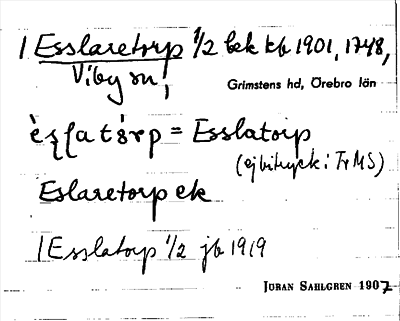 / Esslaretorp 1/2 bek kb 1901, 1748,
Viby sn,
Grimstens hd, Örebro län
= Esslatorp
(ej bitryck: Tr MS)
Eslaretorp ek
/ Esslatorp 1/2 jb 1919
JÖRAN SAHLGREN 1907